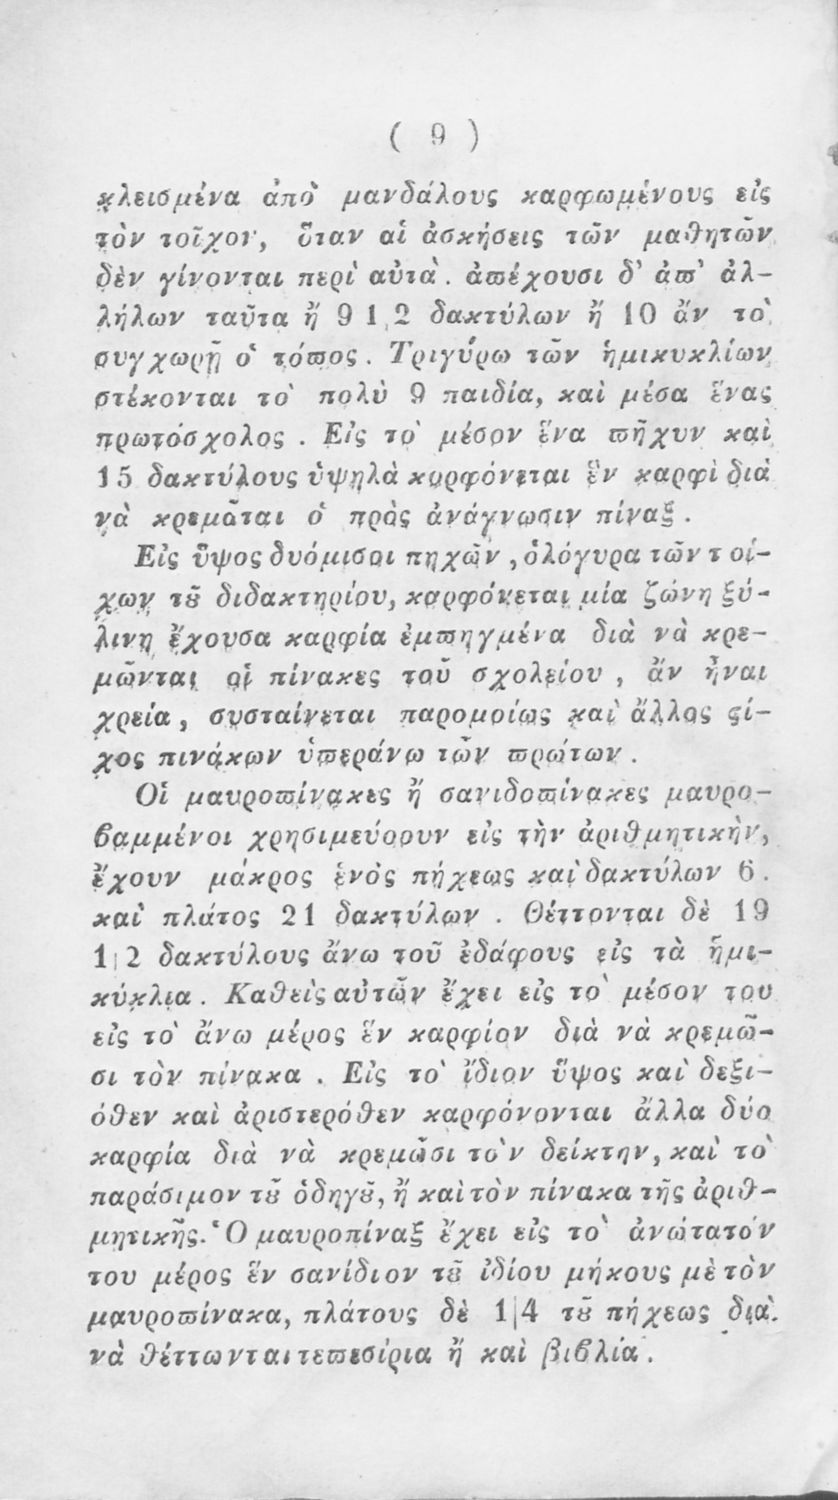 ( 9 )
κλεισμένα ἀπὸ μανδάλους καρφωμένους εἰς
τὸν τοῖχον, ὅταν αἱ ἀσκήσεις τῶν μαθητῶν
δὲν γίνονται περὶ αὐτὰ. ἀπέχουσι δ' ἀπ' ἀλ-
λήλων ταῦτα ἢ 9 1|2 δακτύλων ἢ 10 ἂν τὸ
συγχωρῇ ὁ τόπος. Τριγύρω τῶν ἡμικυκλίων
στέκονται τὸ πολὺ 9 παιδία, καὶ μέσα ἕνας
πρωτόσχολος. Εἰς τὸ μέσον ἕνα πῆχυν καὶ
15 δακτύλους ὑψηλὰ καρφόνεται ἓν καρφὶ διὰ
νὰ κρεμᾶται ὁ πρὸς ἀνάγνωσιν πίναξ.
Εἰς ὕψος δυόμισοι πηχῶν, ὁλόγυρα τῶν τοί-
χων τȣ̃ διδακτηρίου, καρφόνεται μία ζώνη ξύ-
λινη ἔχουσα καρφία ἐμπηγμένα διὰ νὰ κρε-
μῶνται οἱ πίνακες τοῦ σχολείου, ἂν ἦναι
χρεία, συσταίνεται παρομοίως καὶ ἄλλος ϛί-
χος πινάκων ὑπεράνω τῶν πρώτων.
Οἱ μαυροπίνακες ἢ σανιδοπίνακες μαυρο-
βαμμένοι χρησιμεύουν εἰς τὴν ἀριθμητικὴν,
ἔχουν μάκρος ἑνὸς πήχεως καὶ δακτύλων 6.
καὶ πλάτος 21 δακτύλων. Θέττονται δὲ 19
1|2 δακτύλους ἄνω τοῦ ἐδάφους εἰς τὰ ἡμι-
κύκλια. Καθεὶς αὐτῶν ἔχει εἰς τὸ μέσον του
εἰς τὸ ἄνω μέρος ἓν καρφίον διὰ νὰ κρεμῶ-
σι τὸν πίνακα. Εἰς τὸ ἴδιον ὕψος καὶ δεξι-
όθεν καὶ ἀριστερόθεν καρφόνονται ἄλλα δύο
καρφία διὰ νὰ κρεμῶσι τὸν δείκτην, καὶ τὸ
παράσιμον τȣ̃ ὁδηγȣ̃, ἢ καὶ τὸν πίνακα τῆς ἀριθ-
μητικῆς. Ὁ μαυροπίναξ ἔχει εἰς τὸ ἀνώτατόν
του μέρος ἓν σανίδιον τȣ̃ ἰδίου μήκους μὲ τὸν
μαυροπίνακα, πλάτους δὲ 1|4 τȣ̃ πήχεως διὰ
νὰ θέττωνται τεπεσίρια ἢ καὶ βιβλία.